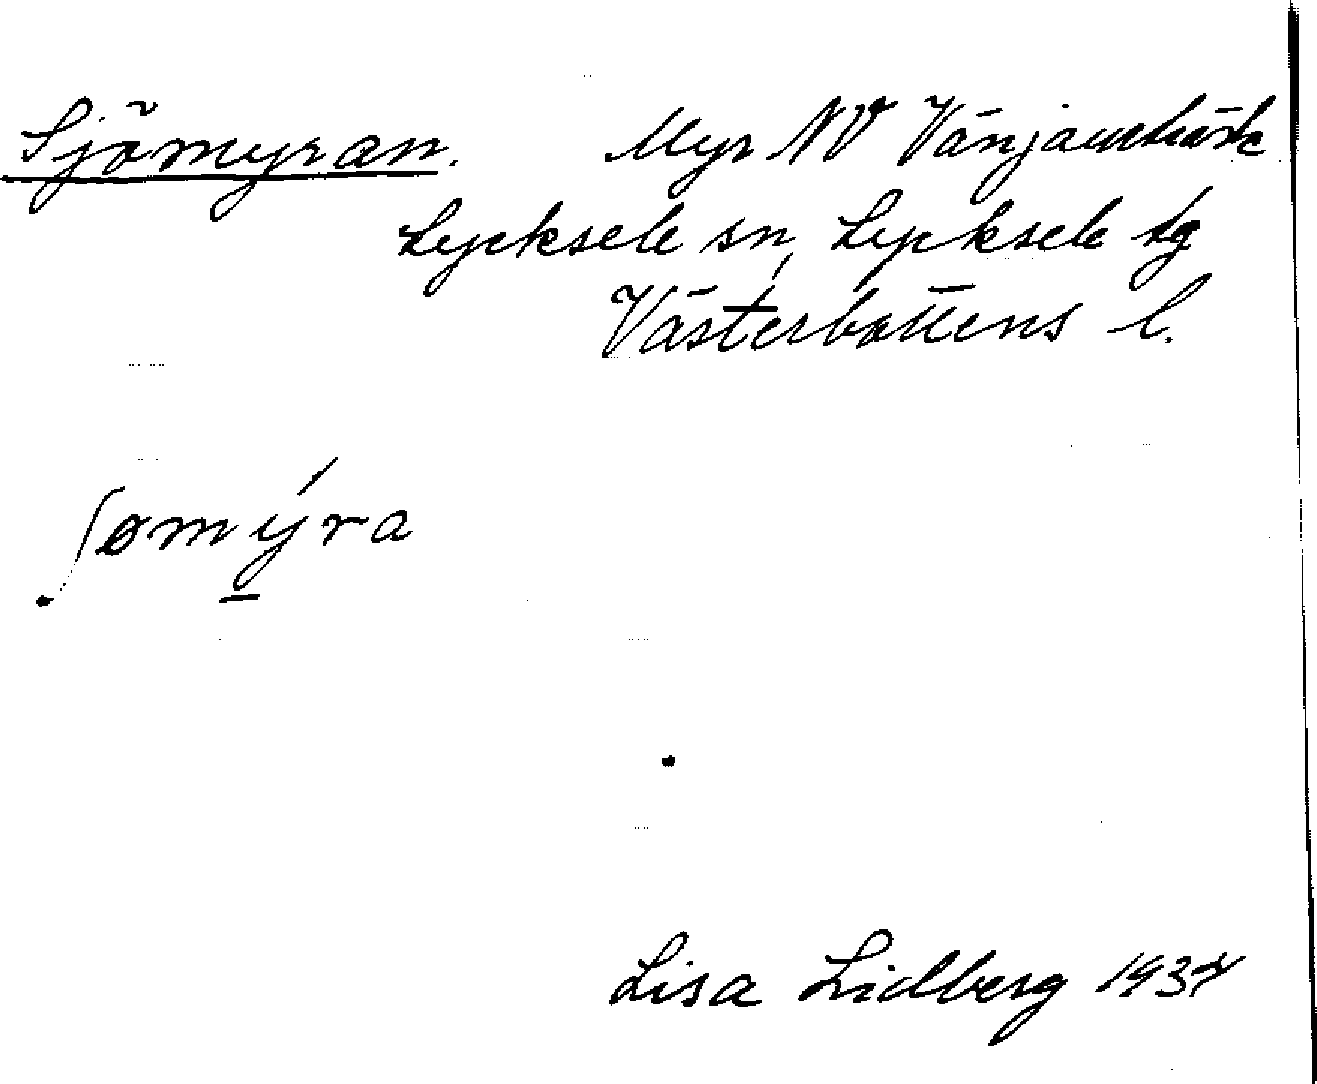 Sjömyran. Myr NV Vänjaurbäck
Lycksele sn, Lycksele lg
Västerbottens l.
ʃømý̠ra
Lisa Lidberg 1934